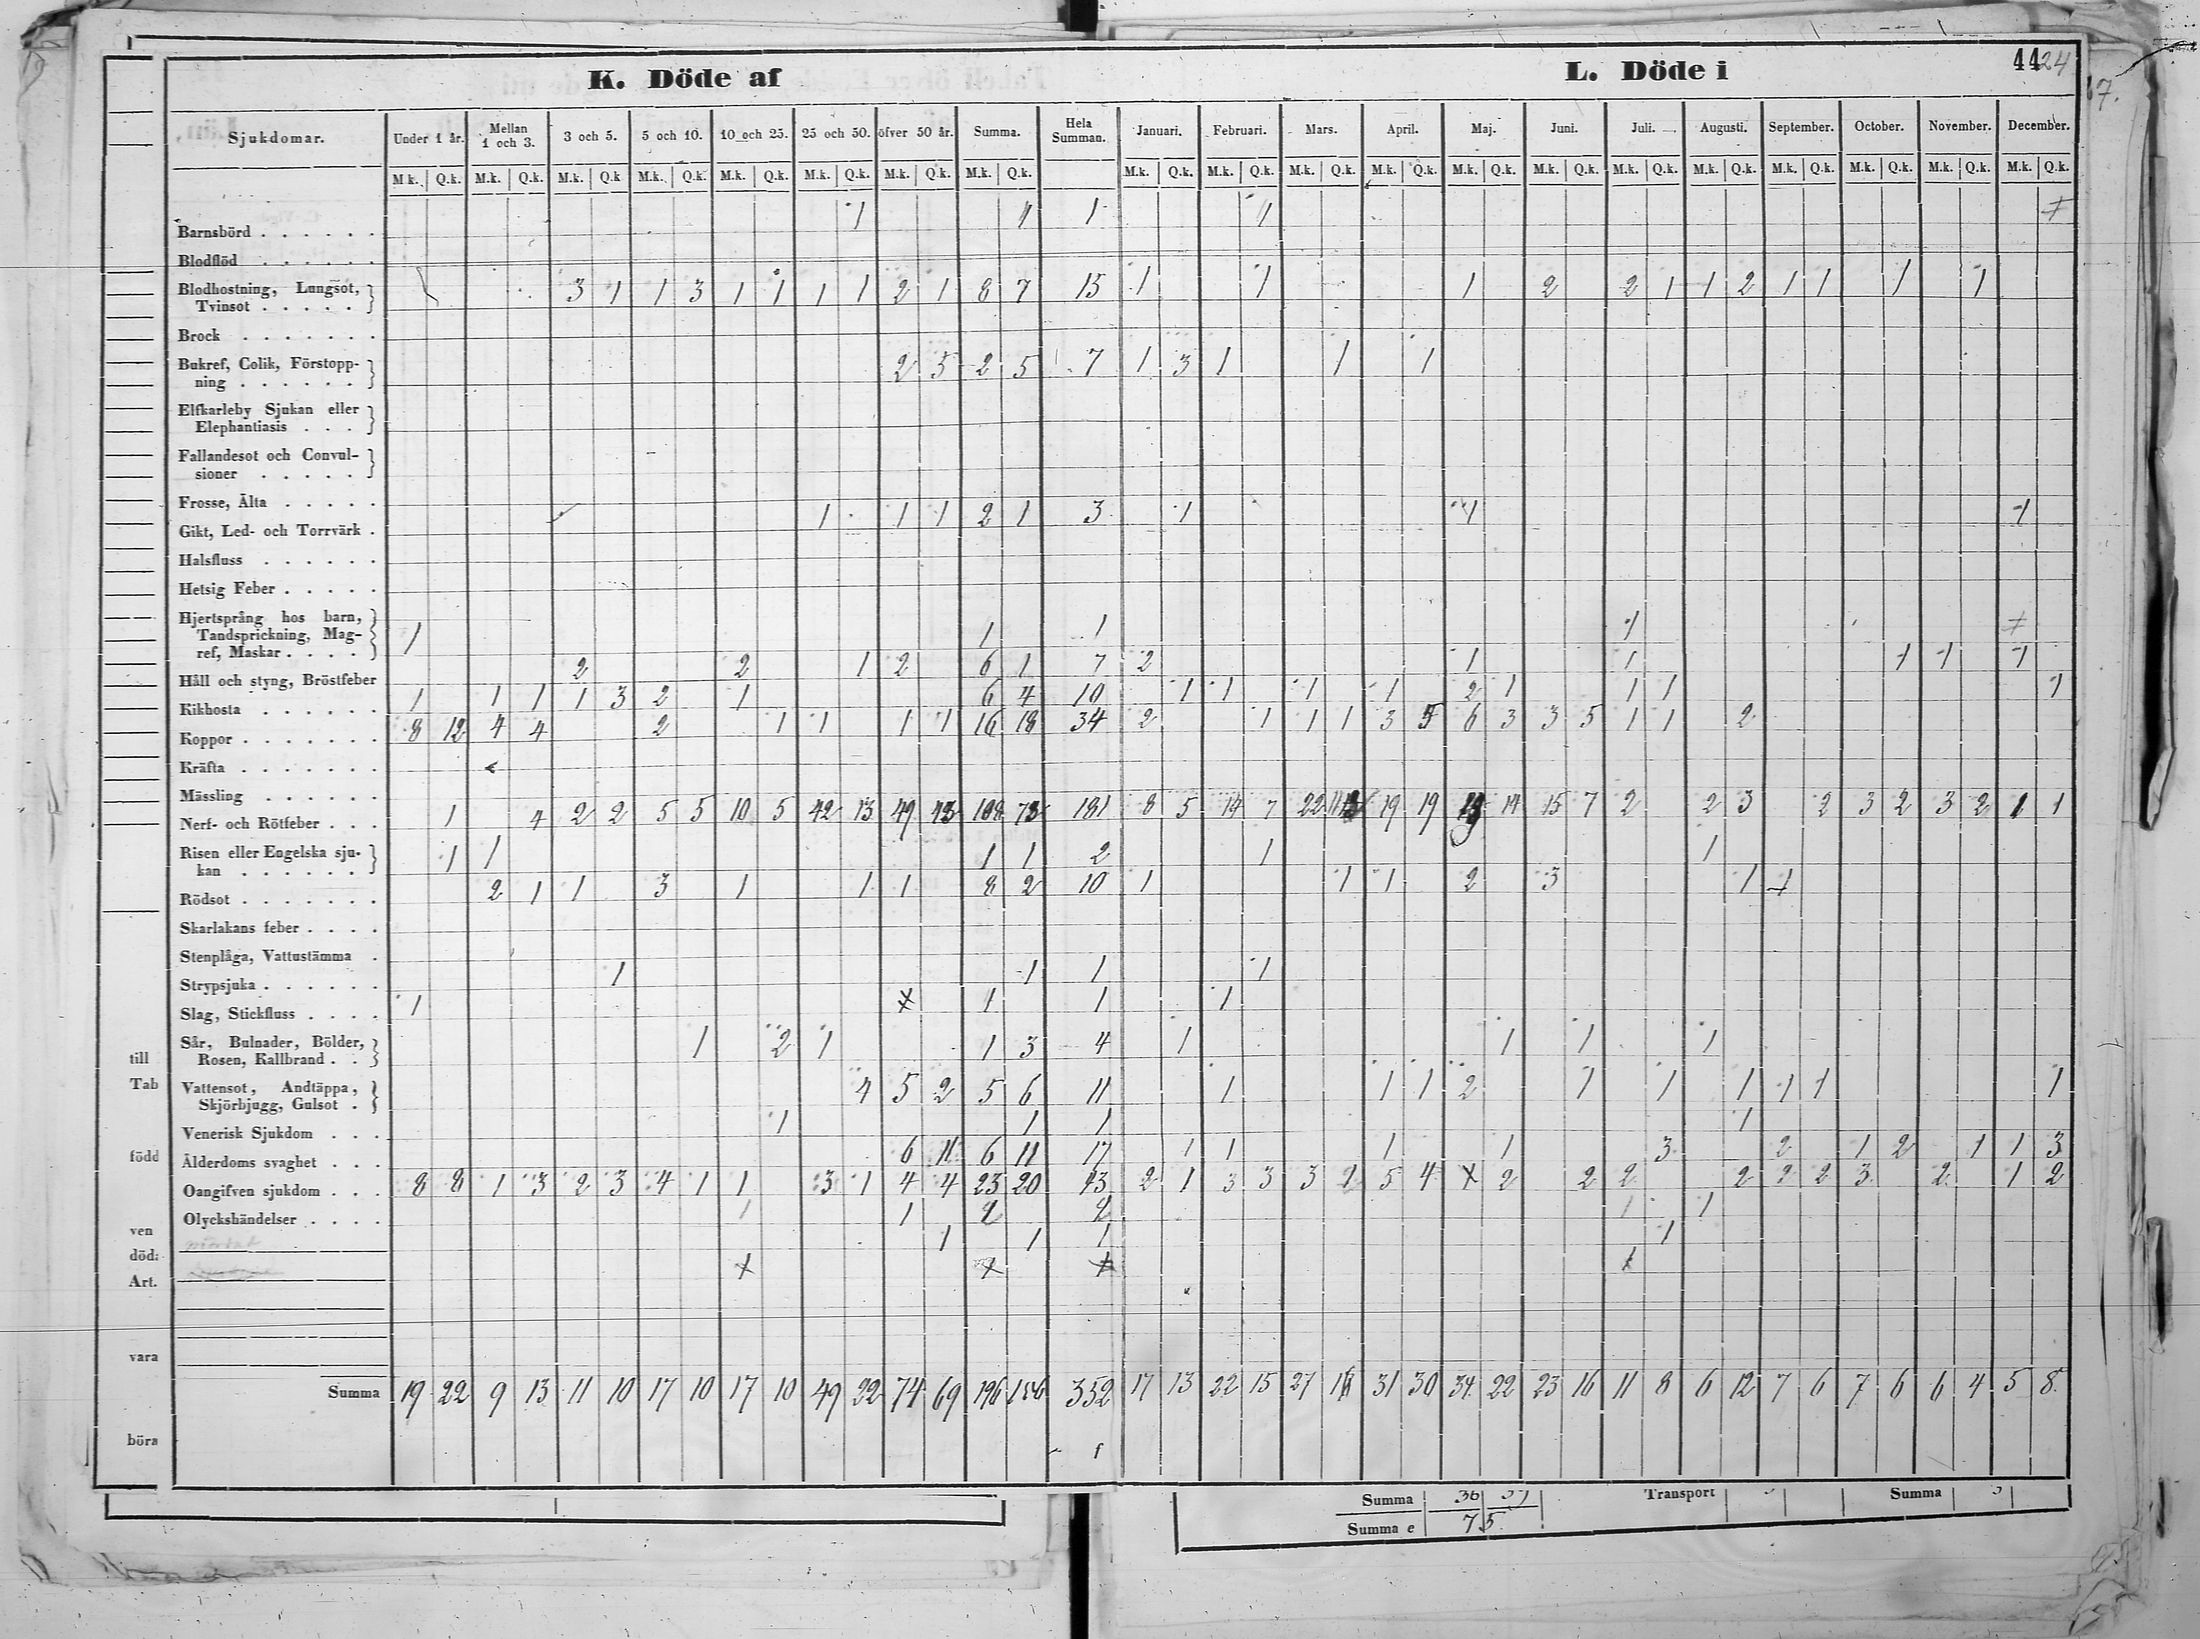 K. Döde af
L. Döde i
44 24
7.
Sjukdomar. Under 1 år. Mellan 1 och 3. 3 och 5. 5 och 10. 10 och 25. 25 och 50. öfver 50 år. Summa. Hela Summan. Januari. Februari. Mars. April. Maj. Juni. Juli. Augusti. September. October. November. December.
M.k. Q.k. M.k. Q.k. M.k. Q.k M.k. Q.k. M.k. Q.k. M.k. Q.k. M.k. Q.k. M.k. Q.k. M.k. Q.k. M.k. Q.k. M.k. Q.k. M.k. Q.k. M.k. Q.k. M.k. Q.k. M.k. Q.k. M.k. Q.k. M.k. Q.k. M.k. Q.k. M.k. Q.k. M.k. Q.k.
Barnsbörd . . . . . . 1 1 1 1
Blodflöd . . . . . .
Blodhostning, Lungsot,
Tvinsot . . . . . 3 1 1 3 1 1 1 1 2 1 8 7 15 1 1 1 2 2 1 1 2 1 1 1 1
Brock . . . . . . .
Bukref, Colik, Förstopp-
ning . . . . . . 2 5 2 5 7 1 3 1 1 1
Elfkarleby Sjukan eller
Elephantiasis . . .
Fallandesot och Convul-
sioner . . . . .
Frosse, Älta . . . . . 1 1 1 2 1 3 1 1 1
Gikt, Led- och Torrvärk .
Halsfluss . . . . . .
Hetsig Feber . . . . .
Hjertsprång hos barn,
Tandsprickning, Mag-
ref, Maskar . . . . 1 1 1 1
Håll och styng, Bröstfeber 2 2 1 2 6 1 7 2 1 1 1 1 1
Kikhosta . . . . . . 1 1 1 1 3 2 1 6 4 10 1 1 1 1 2 1 1 1 1
Koppor . . . . . . . 8 12 4 4 2 1 1 1 1 16 18 34 2 1 1 1 3 5 6 3 3 5 1 1 2
Kräfta . . . . . . .
Mässling . . . . . .
Nerf- och Rötfeber . . . 1 4 2 2 5 5 10 5 42 13 49 43 108 73 181 8 5 14 7 22 19 19 14 15 7 2 2 3 2 3 2 3 2 1 1
Risen eller Engelska sju-
kan . . . . . . 1 1 1 1 2 1 1
Rödsot . . . . . . . 2 1 1 3 1 1 1 8 2 10 1 1 1 2 3 1 1
Skarlakans feber . . . .
Stenplåga, Vattustämma .
Strypsjuka . . . . . . 1 1 1 1
Slag, Stickfluss . . . . 1 1 1 1
Sår, Bulnader, Bölder,
Rosen, Kallbrand . . 1 2 1 1 3 4 1 1 1 1
Vattensot, Andtäppa,
Skjörbjugg, Gulsot . 4 5 2 5 6 11 1 1 1 2 1 1 1 1 1 1
Venerisk Sjukdom . . . 1 1 1 1
Ålderdoms svaghet . . . 6 11 6 11 17 1 1 1 1 3 2 1 2 1 1 3
Oangifven sjukdom . . . 8 8 1 3 2 3 4 1 1 3 1 4 4 23 20 43 2 1 3 3 3 2 5 4 2 2 2 2 2 2 3 2 1 2
Olyckshändelser . . . . 1 1 2 2 1 1
1 1 1 1
Summa 19 22 9 13 11 10 17 10 17 10 49 22 74 69 196 156 352 17 13 22 15 27 31 30 34 22 23 16 11 8 6 12 7 6 7 6 6 4 5 8
till
Tab
född
ven
död:
Art.
vara
böra
Summa 36 39 Transport Summa
Summa e 75